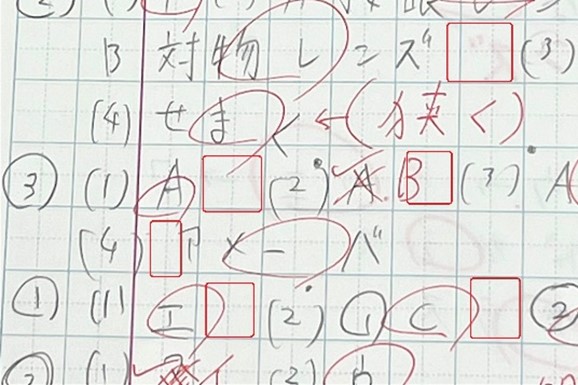 B 対物レンズ (3)
(4) せまく ←(狭く)
③ (1) A (2) A B (3) A
(4) アメーバ
① (1) エ (2) ① C ②
(2) b